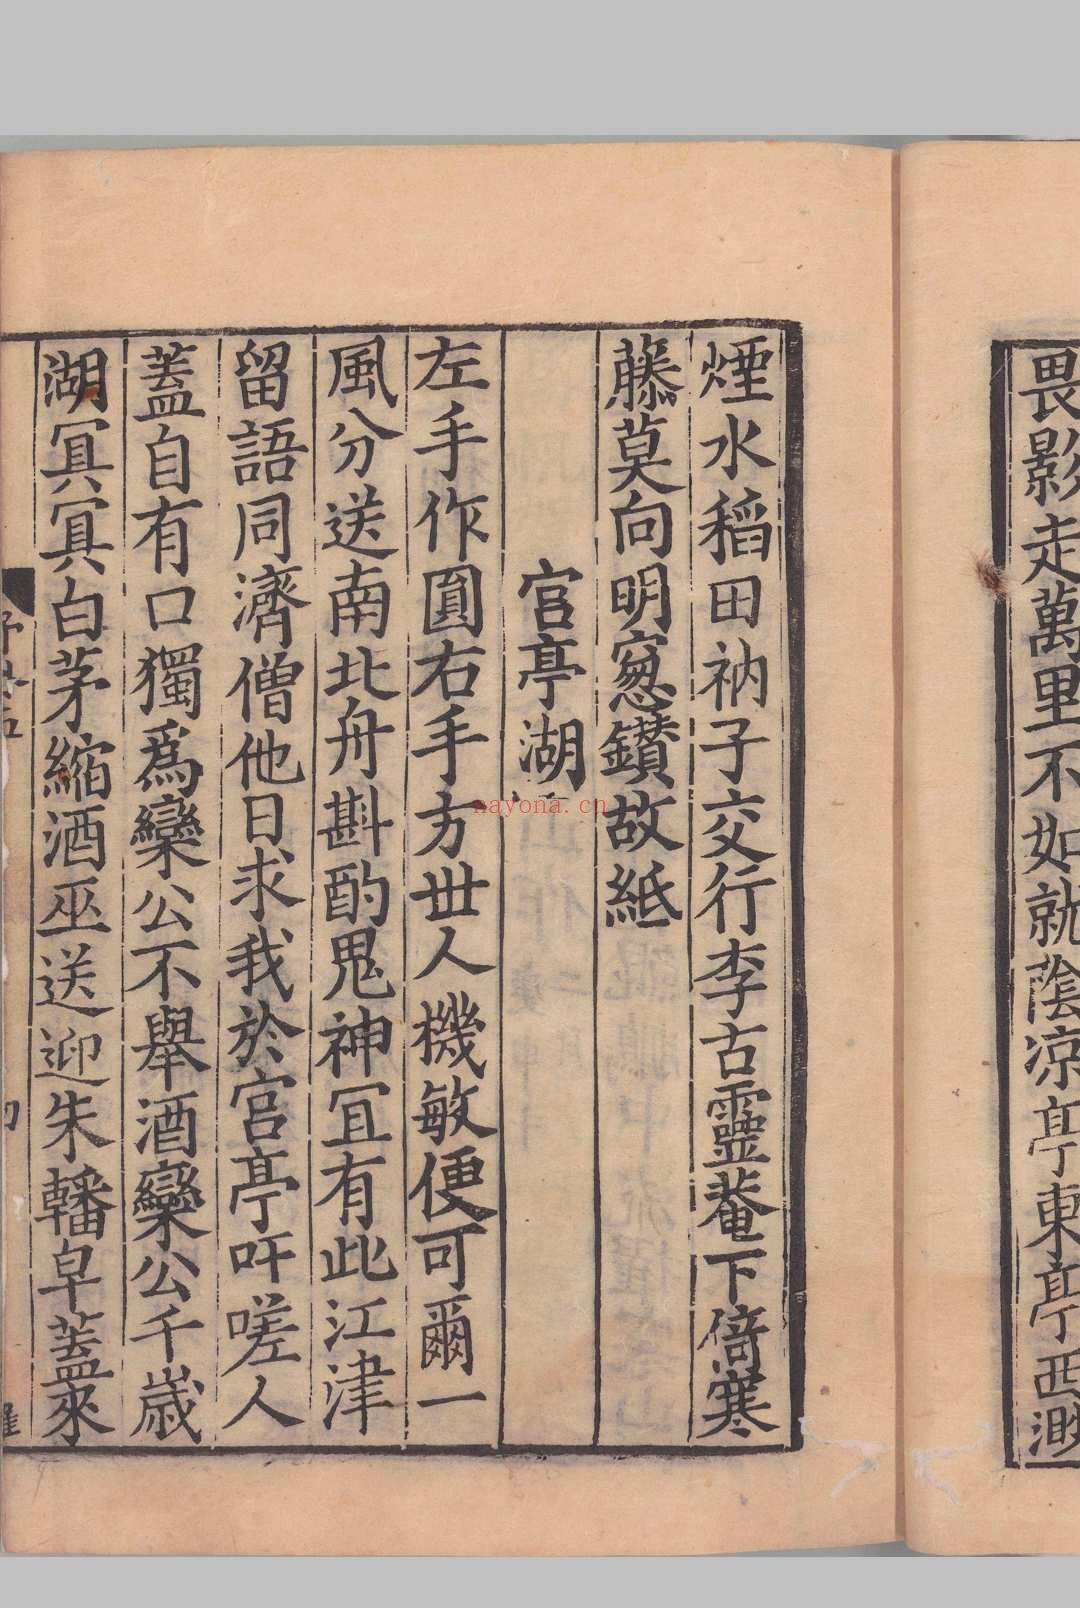 畏影走萬里不如就陰涼亭東亭西渺
煙水稻田衲子交行李古靈菴下倚寒
藤莫向明窻鑽故紙
宫亭湖
左手作圓右手方世人機敏便可爾一
風分送南北舟斟酌鬼神冝有此江津
留語同濟僧他日求我於宫亭吁嗟人
蓋自有口獨爲欒公不舉酒欒公千歲
湖冥冥白茅縮酒巫送迎朱轓皁蓋來
nayona.cn